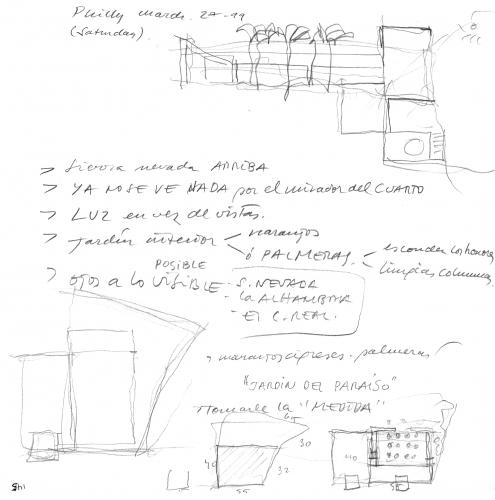 Philly march. 27-99
(Saturday).
> Sierra nevada ARRIBA
> YA NO SE VE NADA por el mirador del CUARTO
> LUZ en vez de vistas.
> Jardín interior < naranjos
ó PALMERAS. < esconden los
limpias columnas.
> ojos a lo POSIBLE VISIBLE
- S. NEVADA
- la ALHAMBRA
- El C. REAL.
> naranjos cipreses . palmeras
"JARDIN DEL PARAÍSO"
Tomarle la "MEDIDA"
65
30
40
32
55
40
55